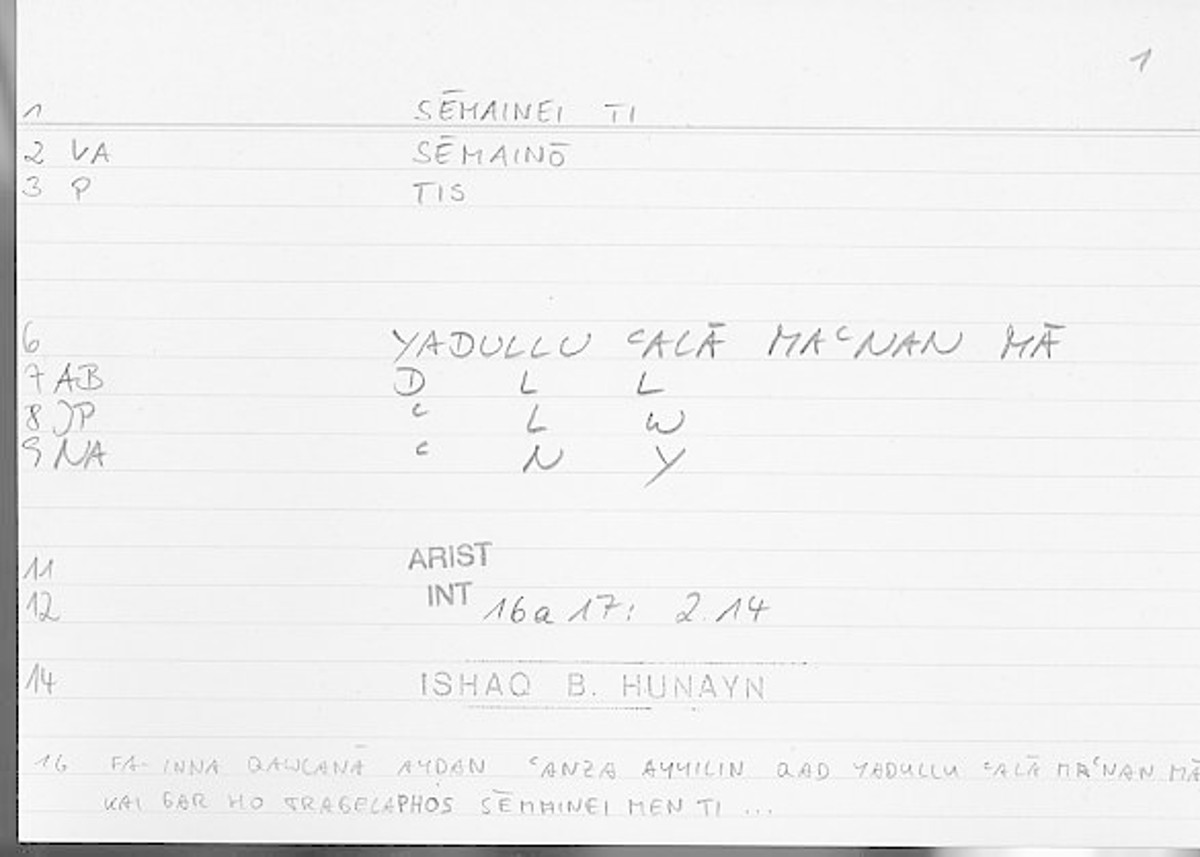 1
1 SĒMAINEI TI
2 VA SĒMAINŌ
3 P TIS
6 YADULLU ʿALĀ MAʿNAN MĀ
7 AB D L L
8 JP ʿ L W
9 NA ʿ N Y
11 ARIST
12 INT 16a 17: 2.14
14 ISHAQ B. HUNAYN
16 FA-INNA QAWLANĀ AYDAN ʿANZA AYYILIN QAD YADULLU ʿALĀ MAʿNAN MĀ
KAI GAR HO TRAGELAPHOS SĒMAINEI MEN TI ...